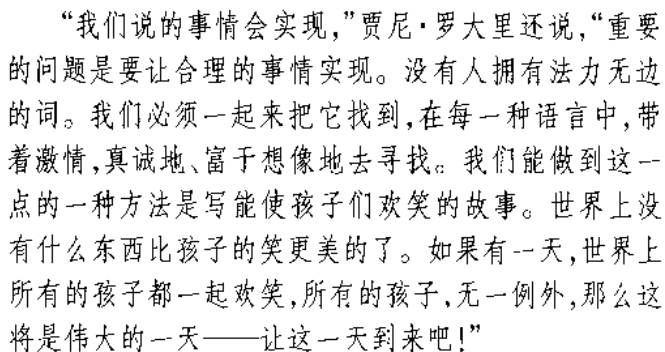 “我们说的事情会实现,”贾尼·罗大里还说,“重要
的问题是要让合理的事情实现。没有人拥有法力无边
的词。我们必须一起来把它找到,在每一种语言中,带
着激情,真诚地、富于想像地去寻找。我们能做到这一
点的一种方法是写能使孩子们欢笑的故事。世界上没
有什么东西比孩子的笑更美的了。如果有一天,世界上
所有的孩子都一起欢笑,所有的孩子,无一例外,那么这
将是伟大的一天——让这一天到来吧!”